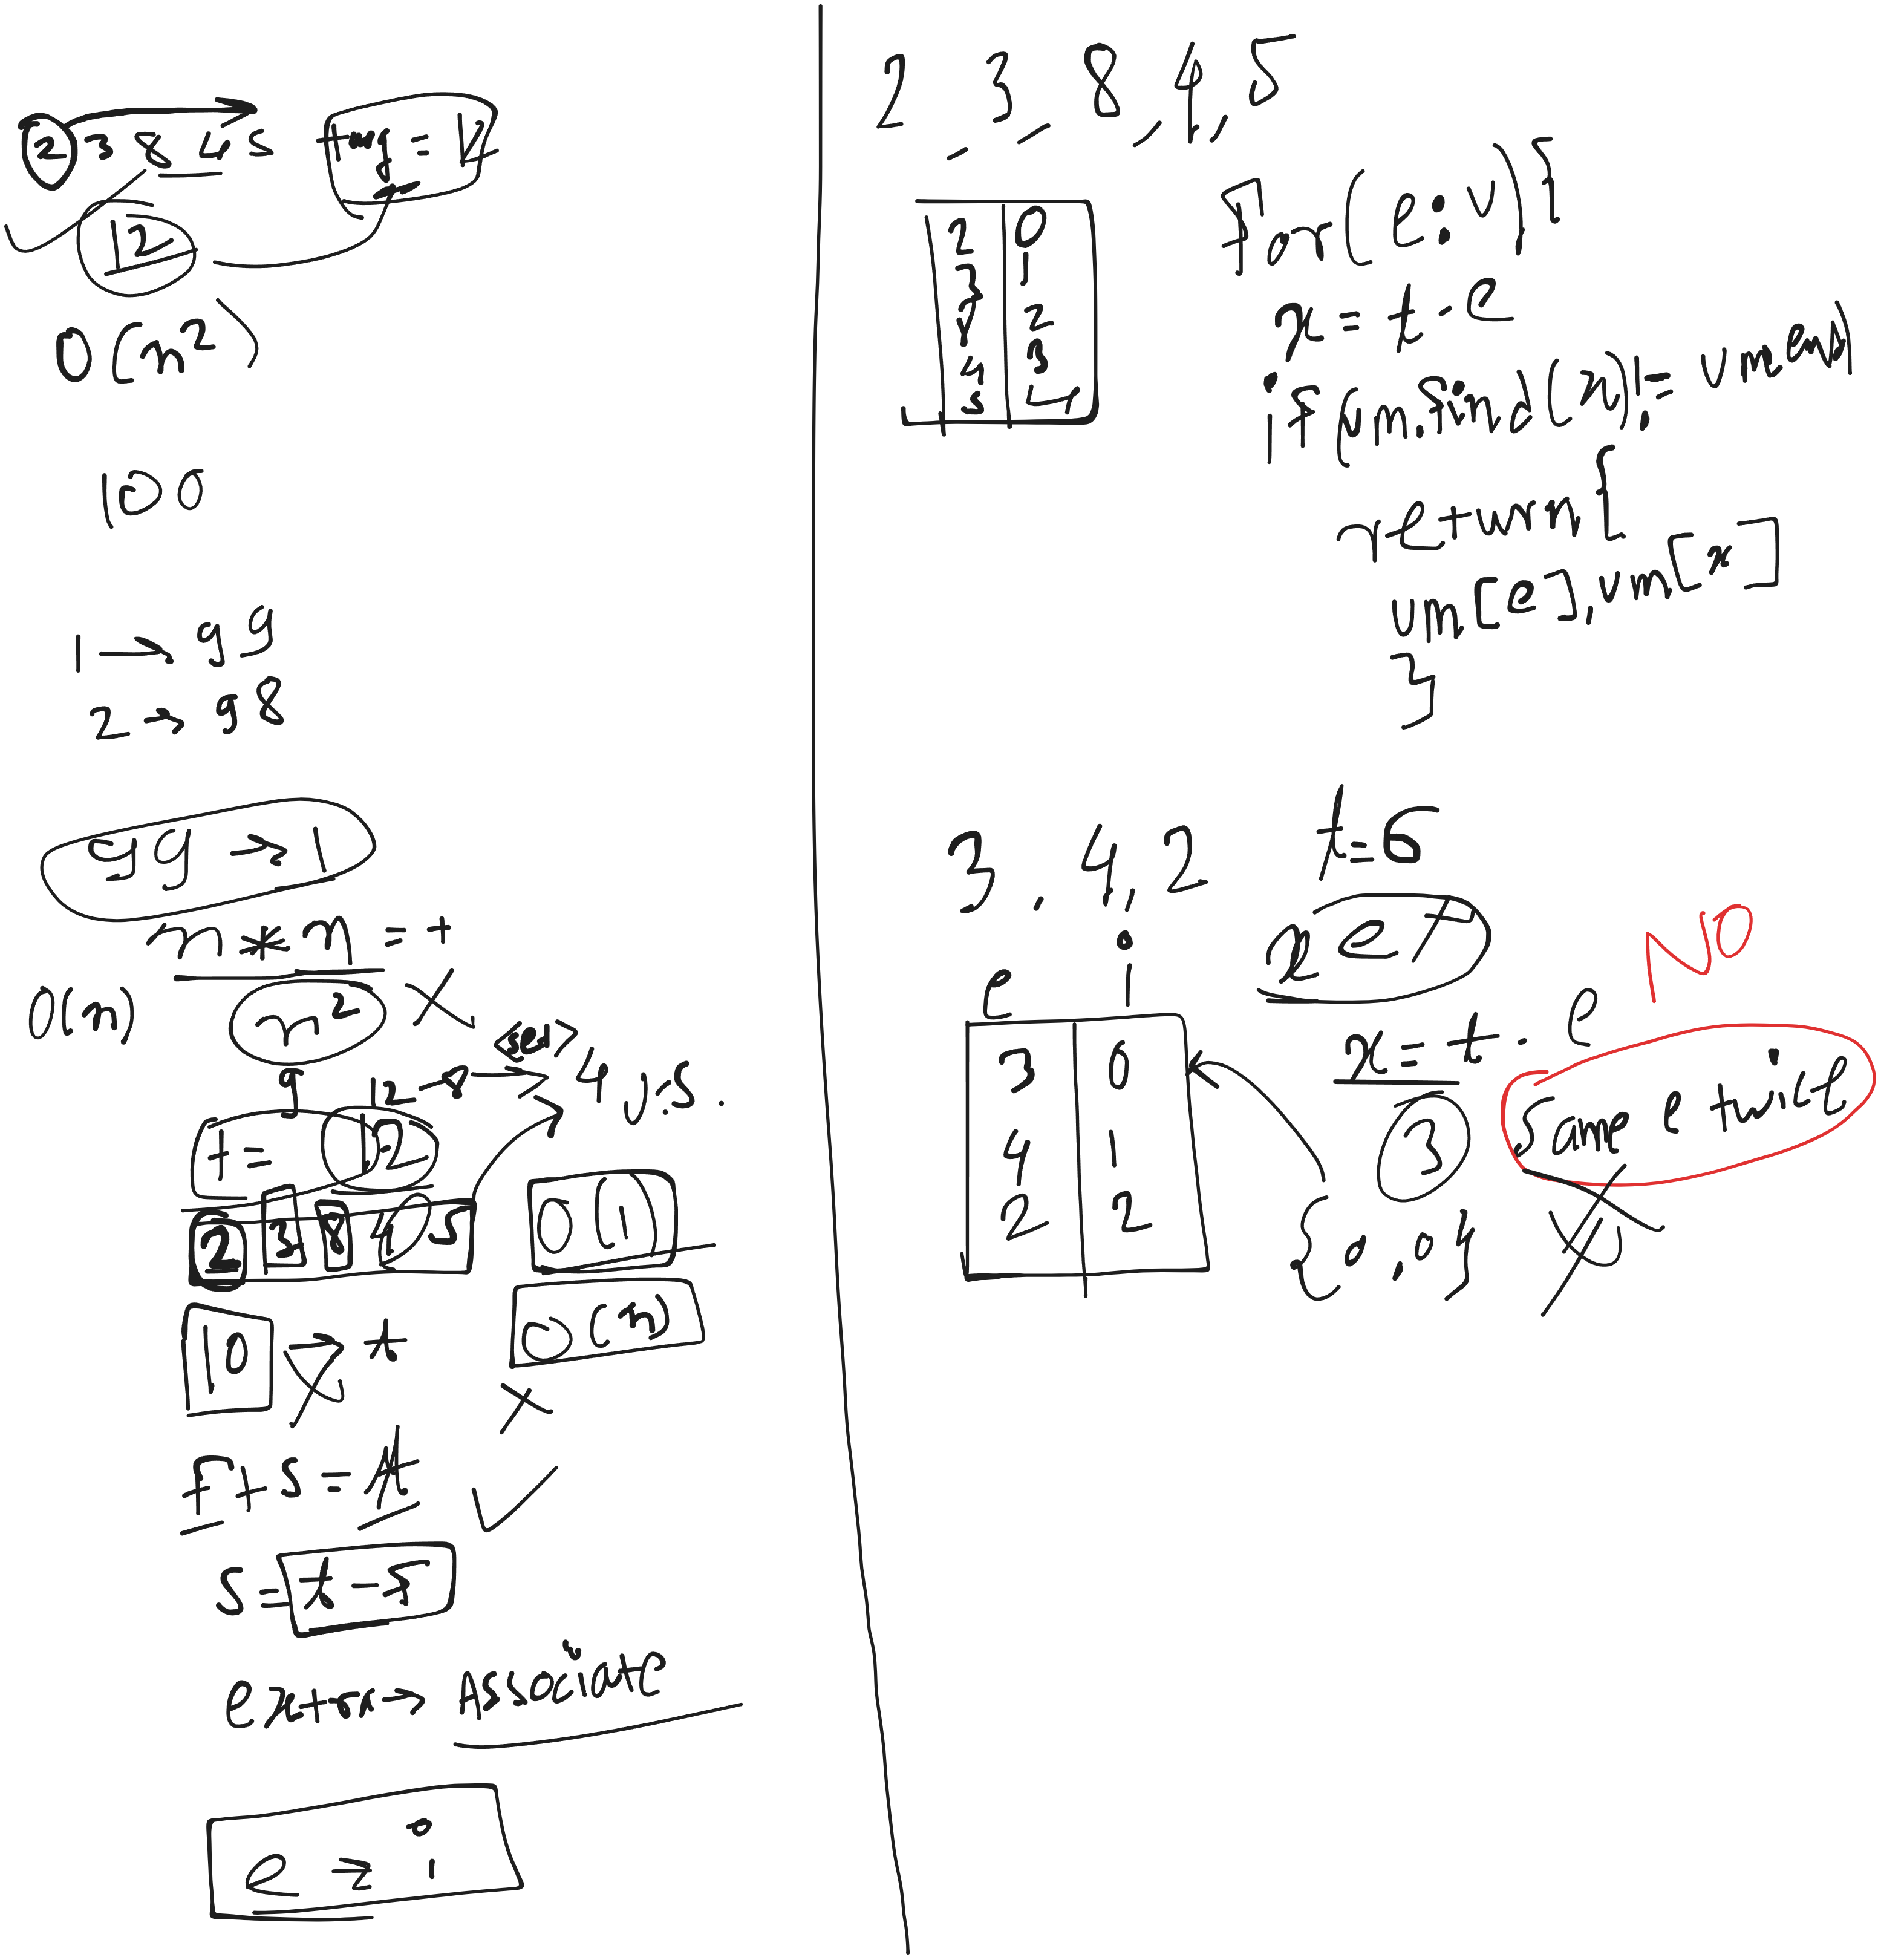 2 3 8 4 5
12
O(n²)
100
1 → 99
2 → 98
99 → 1
n * n = +
O(n)
n²
t = 12
2 3 8 4 5
O(1)
10 → t
O(n)
F + S = t
S = t - F
extra → Associate
e → i
2, 3, 8, 4, 5
2 0
3 1
8 2
4 3
5 4
For(e:v){
x = t - e
if(um.find(x)!= um.end)
return{
um[e], um[x]
}
3, 4, 2 t = 6
e i
3 0
4 1
2 2
x = t - e
3
{0, 0}
NO
Same e twice